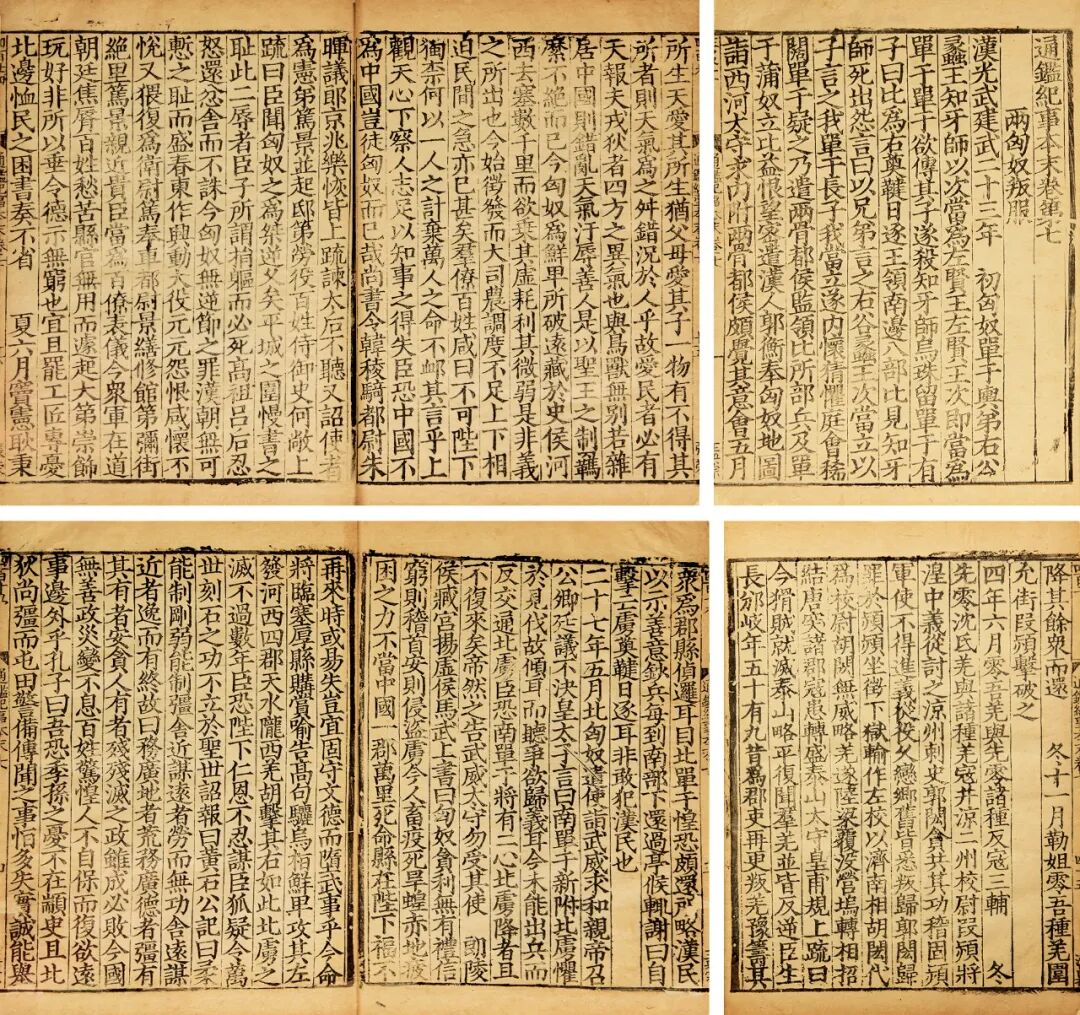 通鑑紀事本末卷第七
兩匈奴叛服
漢光武建武二十三年 初匈奴單于輿弟右谷
蠡王知牙師以次當為左賢王左賢王次即當為
單于單于欲傳其子遂殺知牙師烏珠留單于有
子曰比為右薁鞬日逐王領南邊八部比見知牙
師死出怨言曰以兄弟言之右谷蠡王次當立以
子言之我單于長子我當立遂內懷猜懼庭會稀
闊單于疑之乃遣兩骨都侯監領比所部兵及單
于蒲奴立比益恨望密遣漢人郭衡奉匈奴地圖
詣西河太守求內附兩骨都侯頗覺其意會五月
所生天愛其所生猶父母愛其子一物有不得其
所者則天氣為之舛錯況於人乎故愛民者必有
天報夫戎狄者四方之異氣也與鳥獸無別若雜
居中國則錯亂天氣汙辱善人是以聖王之制羈
縻不絕而已今匈奴為鮮卑所破遠藏於史侯河
西去塞數千里而欲乘其虛耗利其微弱是非義
之所出也今始徵發而大司農調度不足上下相
迫民間之急亦已甚矣羣僚百姓咸曰不可陛下
獨柰何以一人之計棄萬人之命不卹其言乎上
觀天心下察人志足以知事之得失臣恐中國不
為中國豈徒匈奴而已哉尚書令韓稜騎都尉朱
暉議郎京兆樂恢皆上疏諫太后不聽又詔使者
為憲弟篤景並起邸第勞役百姓侍御史何敞上
疏曰臣聞匈奴之為桀逆久矣平城之圍慢書之
恥此二辱者臣子所謂捐軀而必死高祖呂后忍
怒還忿舍而不誅今匈奴無逆節之罪漢朝無可
慙之恥而盛春東作興動大役元元怨恨咸懷不
悅又猥復為衛尉篤奉車都尉景繕修館第彌街
絕里篤景親近貴臣當為百僚表儀今衆軍在道
朝廷焦脣百姓愁苦縣官無用而遽起大第崇飾
玩好非所以垂令德示無窮也宜且罷工匠專憂
北邊恤民之困書奏不省 夏六月竇憲耿秉
降其餘衆而還 冬十一月勒姐零吾種羌圍
允街段熲擊破之
四年六月零吾羌與先零諸種反寇三輔 冬
先零沈氐羌與諸種羌寇并涼二州校尉段熲將
湟中義從討之涼州刺史郭閎貪共其功稽固熲
軍使不得進義從役久戀鄉舊皆悉叛歸郭閎歸
罪於熲熲坐徵下獄輸作左校以濟南相胡閎代
為校尉胡閎無威略羌遂陸梁覆沒營塢轉相招
結唐突諸郡寇患轉盛泰山太守皇甫規上疏曰
今猾賊就滅泰山略平復聞羣羌並皆反逆臣生
長邠岐年五十有九昔為郡吏再更叛羌豫籌其
衆為郡縣偵邏耳目北單于惶恐頗還所略漢民
以示善意鈔兵每到南部下還過亭候輒謝曰自
擊亡虜薁鞬日逐耳非敢犯漢民也
二十七年五月北匈奴遣使詣武威求和親帝召
公卿廷議不決皇太子言曰南單于新附北虜懼
於見伐故傾耳而聽爭欲歸義耳今未能出兵而
反交通北虜臣恐南單于將有二心北虜降者且
不復來矣帝然之告武威太守勿受其使 朗陵
侯臧宮揚虛侯馬武上書曰匈奴貪利無有禮信
窮則稽首安則侵盜虜今人畜疫死旱蝗赤地疲
困之力不當中國一郡萬里死命縣在陛下福不
再來時或易失豈宜固守文德而墮武事乎今命
將臨塞厚縣購賞喻告高句驪烏桓鮮卑攻其左
發河西四郡天水隴西羌胡擊其右如此北虜之
滅不過數年臣恐陛下仁恩不忍謀臣狐疑令萬
世刻石之功不立於聖世詔報曰黃石公記曰柔
能制剛弱能制彊舍近謀遠者勞而無功舍遠謀
近者逸而有終故曰務廣地者荒務廣德者彊有
其有者安貪人有者殘殘滅之政雖成必敗今國
無善政災變不息百姓驚惶人不自保而復欲遠
事邊外乎孔子曰吾恐季孫之憂不在顓臾且北
狄尚彊而屯田警備傳聞之事恒多失實誠能舉